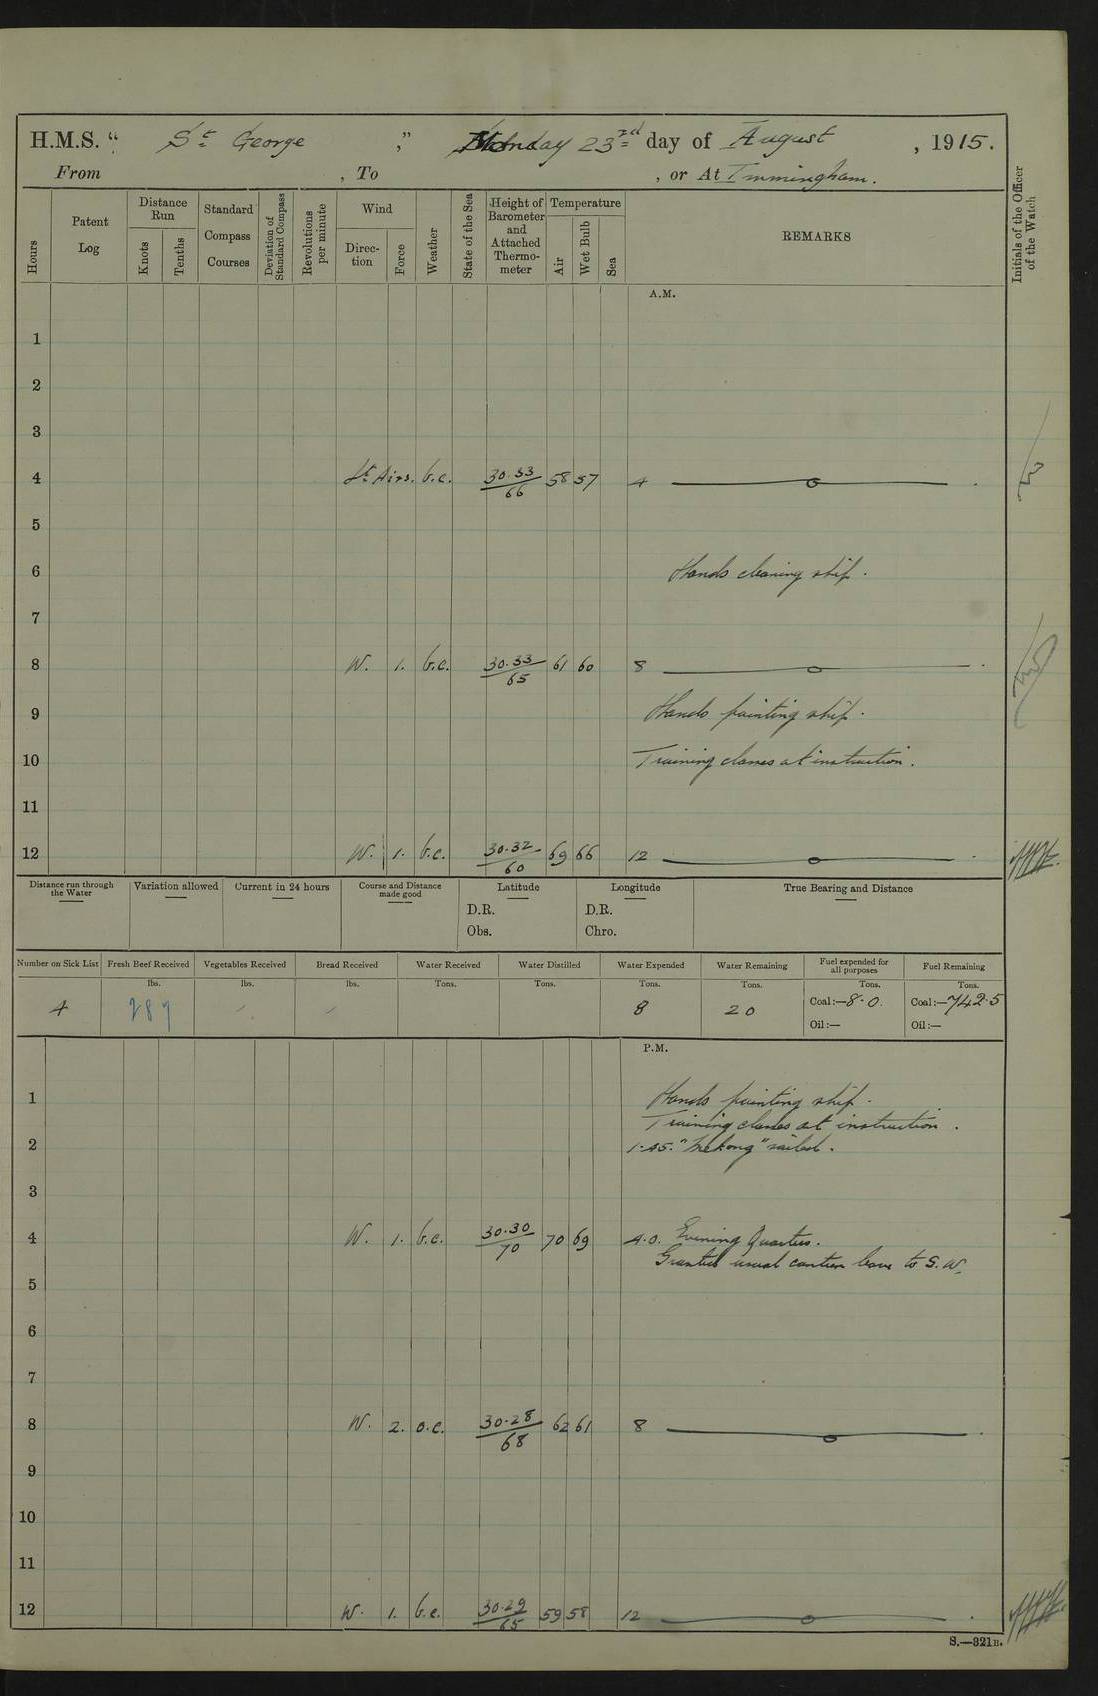 H.M.S. "St George," Monday 23rd day of August, 1915.
From , To , or At Immingham.
Hours
Patent Log
Distance Run
Knots
Tenths
Standard Compass Courses
Deviation of Standard Compass
Revolutions per minute
Wind
Direction
Force
Weather
State of the Sea
Height of Barometer and Attached Thermometer
Temperature
Air
Wet Bulb
Sea
REMARKS
Initials of the Officer of the Watch
A.M.
1
2
3
4 Lt Airs. b.c. 30.33/66 58 57 4
5
6 Hands cleaning ship.
7
8 W. 1. b.c. 30.33/65 61 60 8
9 Hands painting ship.
10 Training classes at instruction.
11
12 W. 1. b.c. 30.32/60 69 66 12
Distance run through the Water
Variation allowed
Current in 24 hours
Course and Distance made good
Latitude
D.R.
Obs.
Longitude
D.R.
Chro.
True Bearing and Distance
Number on Sick List
Fresh Beef Received
Vegetables Received
Bread Received
Water Received
Water Distilled
Water Expended
Water Remaining
Fuel expended for all purposes
Fuel Remaining
lbs. lbs. lbs. Tons. Tons. Tons. Tons. Tons. Tons.
4 289 - - 8 20 Coal:—8.0. Coal:—742.5
Oil:— Oil:—
P.M.
1 Hands painting ship.
Training classes at instruction.
2 1.45. "Mekong" sailed.
3
4 W. 1. b.c. 30.30/70 70 69 4.0. Evening Quarters.
Granted usual canteen leave to S.W.
5
6
7
8 W. 2. o.c. 30.28/68 62 61 8
9
10
11
12 W. 1. b.c. 30.29/65 59 58 12
S.—321B.